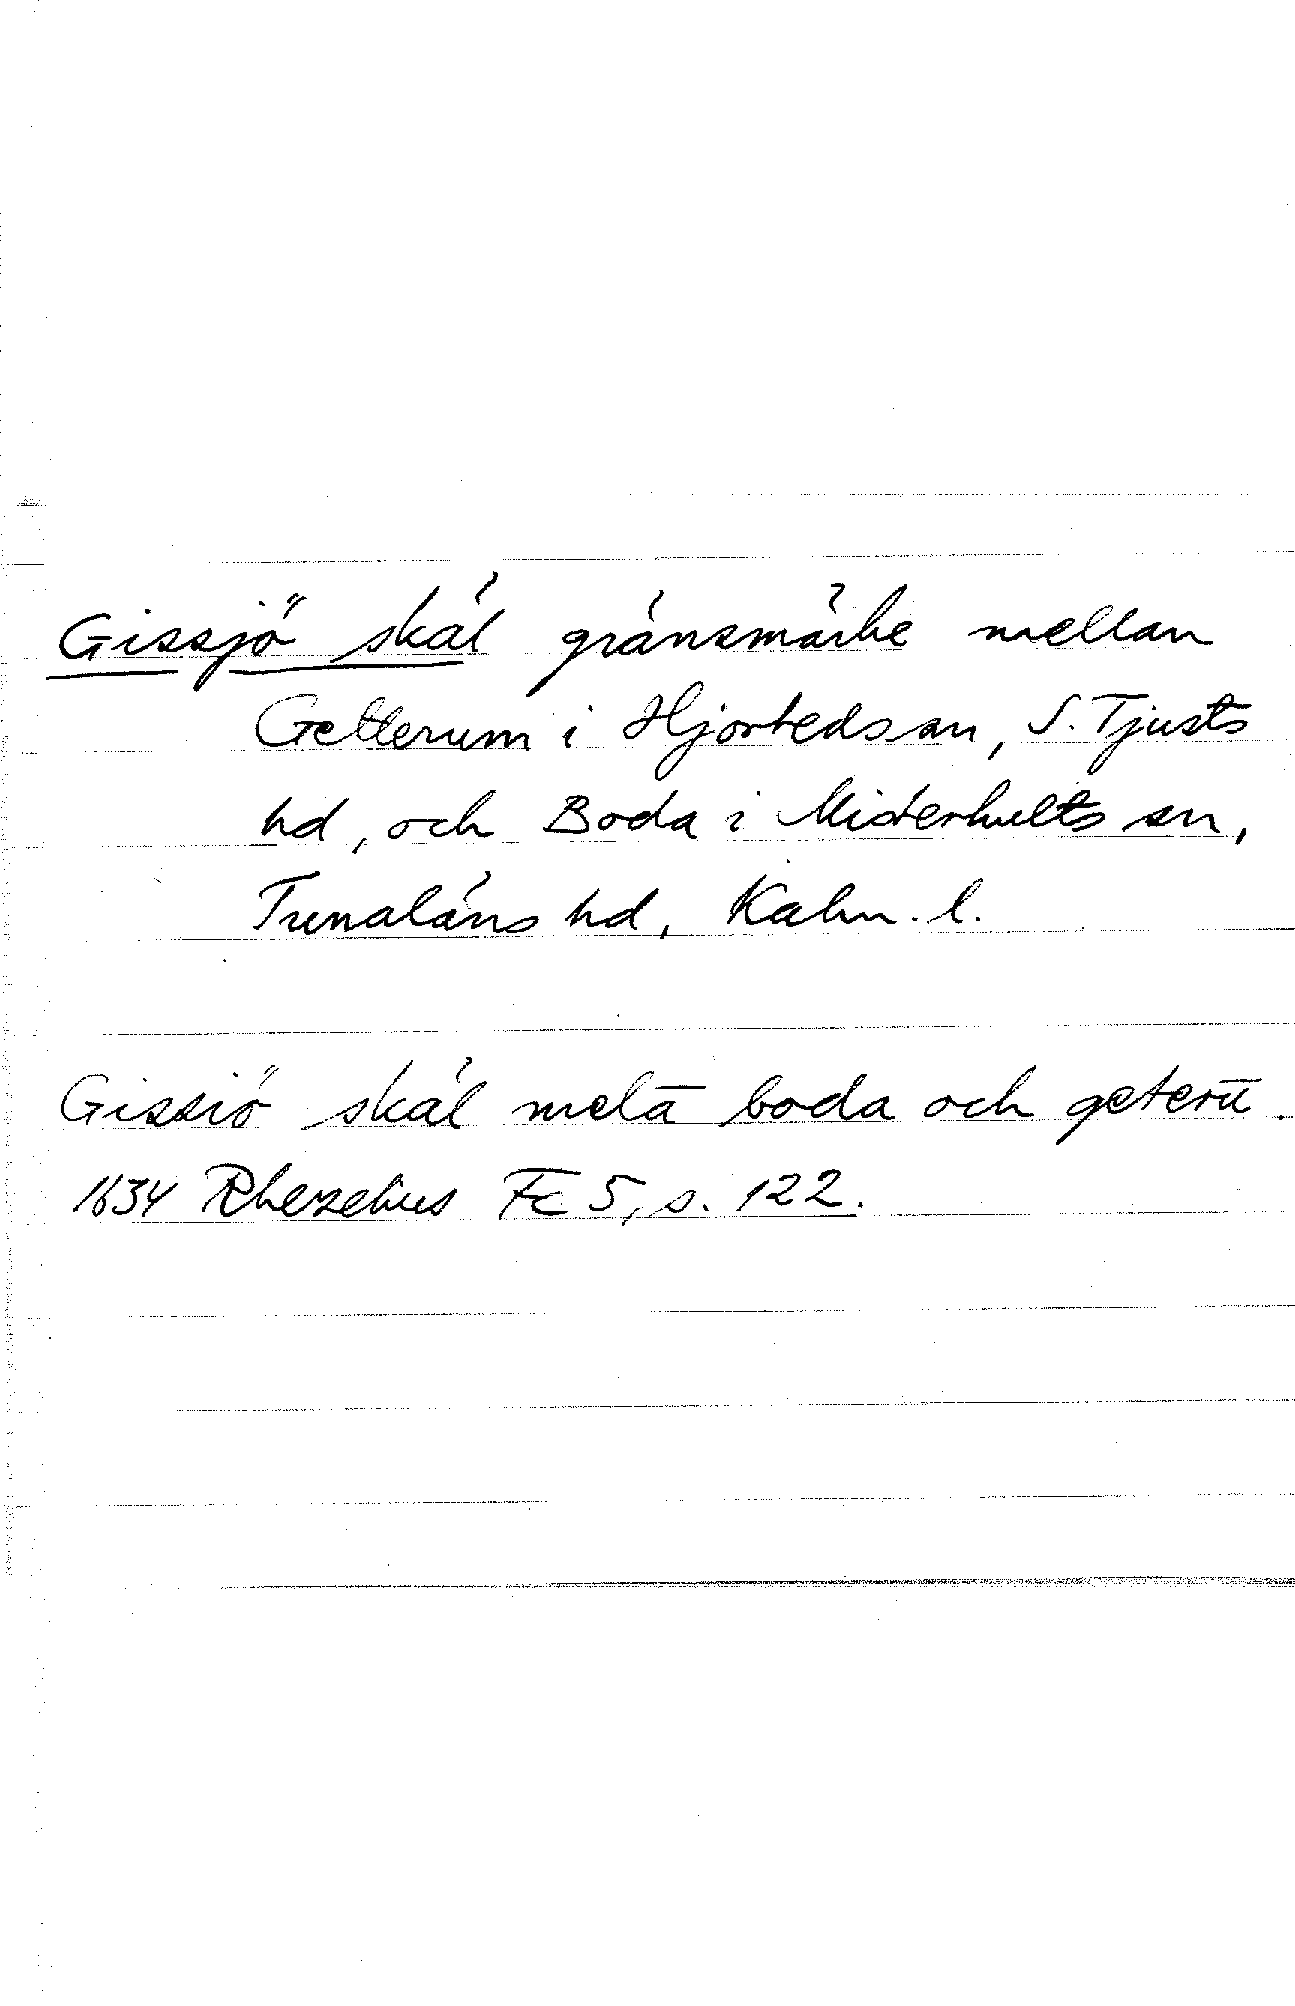 Gissjö skäl gränsmärke mellan
Getterum i Hjorteds sn, S. Tjusts
hd, och Boda i Misterhults sn,
Tunaläns hd, Kalm. l.
Gissiö skäl melā boda och geterū.
1634 Rhezelius Fc 5, s. 122.